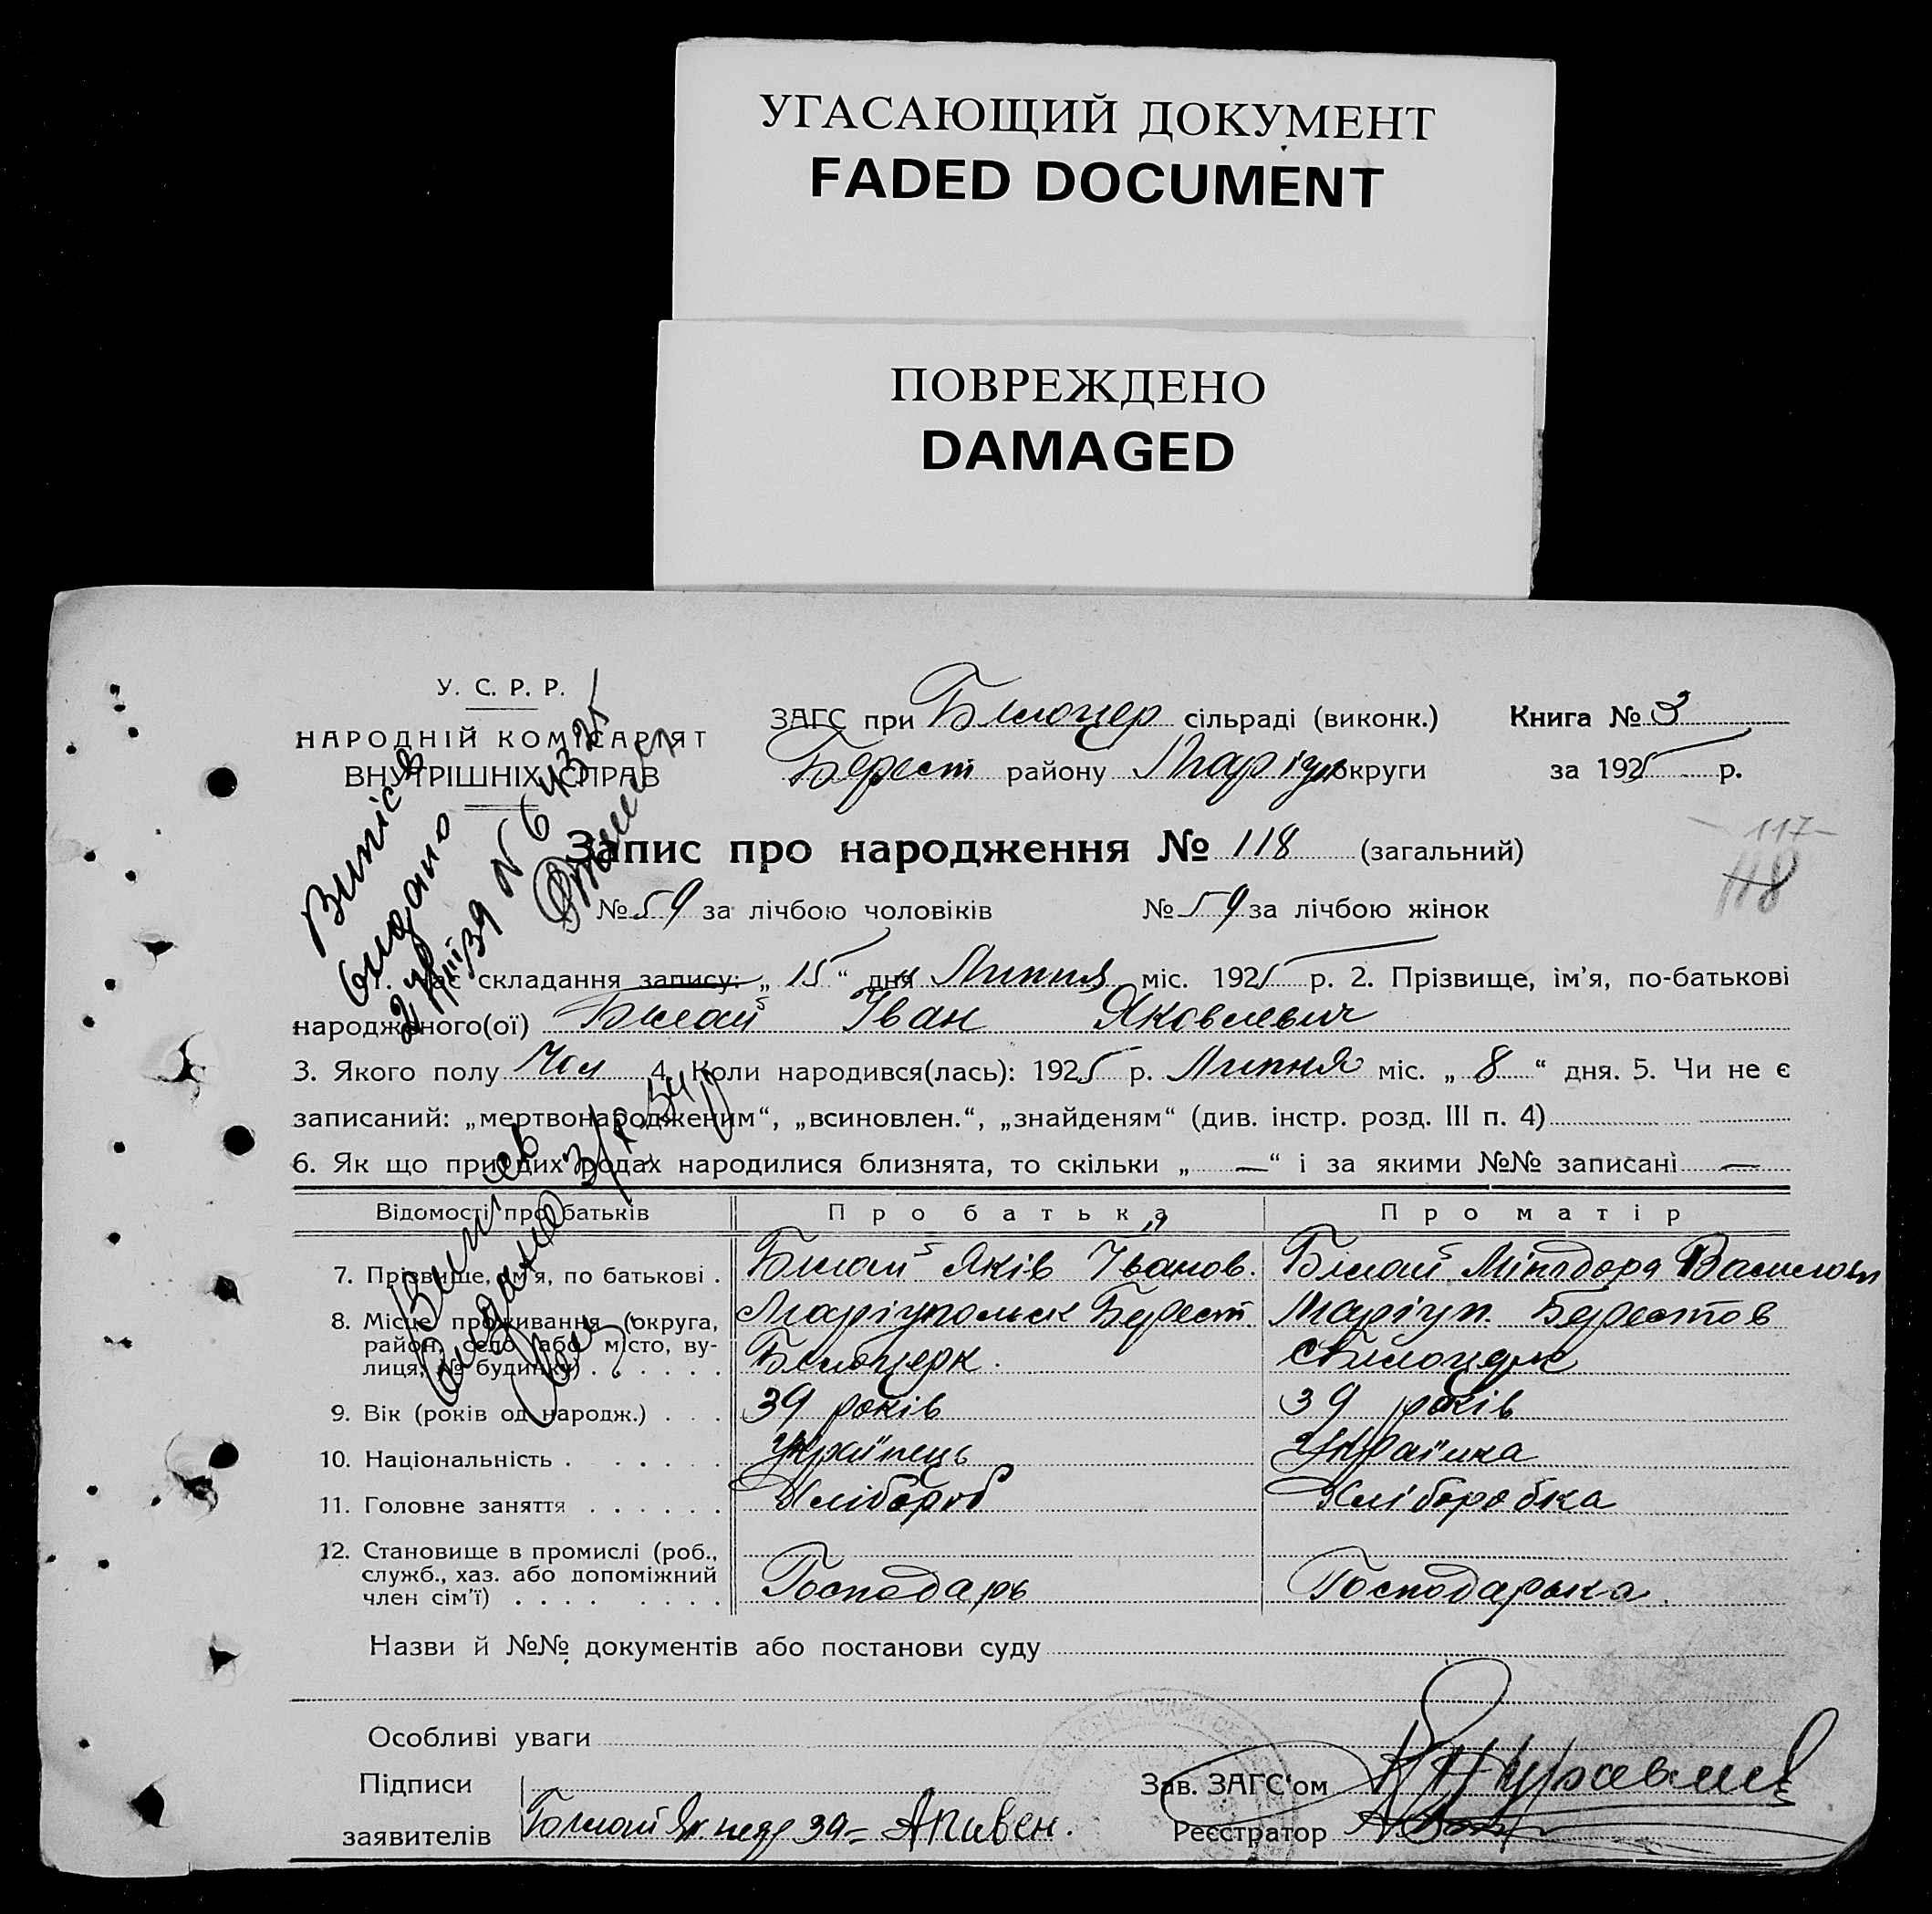 УГАСАЮЩИЙ ДОКУМЕНТ
FADED DOCUMENT
ПОВРЕЖДЕНО
DAMAGED
У. С. Р. Р.
НАРОДНІЙ КОМІСАРІЯТ
ВНУТРІШНІХ СПРАВ
ЗАГС при Білоцер сільраді (виконк.) Книга № 3
Берест району Маріуп округи за 1925 р.
Запис про народження № 118 (загальний)
117
118
№ 59 за лічбою чоловіків № 59 за лічбою жінок
1. Час складання запису: „ 15 “ дня Липня міс. 1925 р. 2. Прізвище, ім'я, по-батькові
народженого(ої) Білай Іван Яковлевич
3. Якого полу Чол 4. Коли народився(лась): 1925 р. Липня міс. „ 8 “ дня. 5. Чи не є
записаний: „мертвонародженим“, „всиновлен.“, „знайденям“ (див. інстр. розд. III п. 4)
6. Як що при цих родах народилися близнята, то скільки „ — “ і за якими №№ записані —
Відомості про батьків Про батька Про матір
7. Прізвище, ім'я, по батькові . Білай Яків Іванов. Білай Мінодора Василівн
8. Місце проживання (округа, Маріупольск Берест Маріуп. Берестов
район, село або місто, ву-
лиця, № будинку) . . . . . . Білоцерк. с Білоцерк
9. Вік (років од народж.) . . . 39 років 39 років
10. Національність . . . . . . Українець Українка
11. Головне заняття . . . . . . Хлібороб Хліборобка
12. Становище в промислі (роб.,
служб., хаз. або допоміжний
член сім'ї) . . . . . . . . Господарь Господарька
Назви й №№ документів або постанови суду
Особливі уваги
Підписи
заявителів Білай Як. негр за- А Пивен.
Зав. ЗАГС'ом Журавлев
Реєстратор
Випис в
видано
N 6
Випис
видано